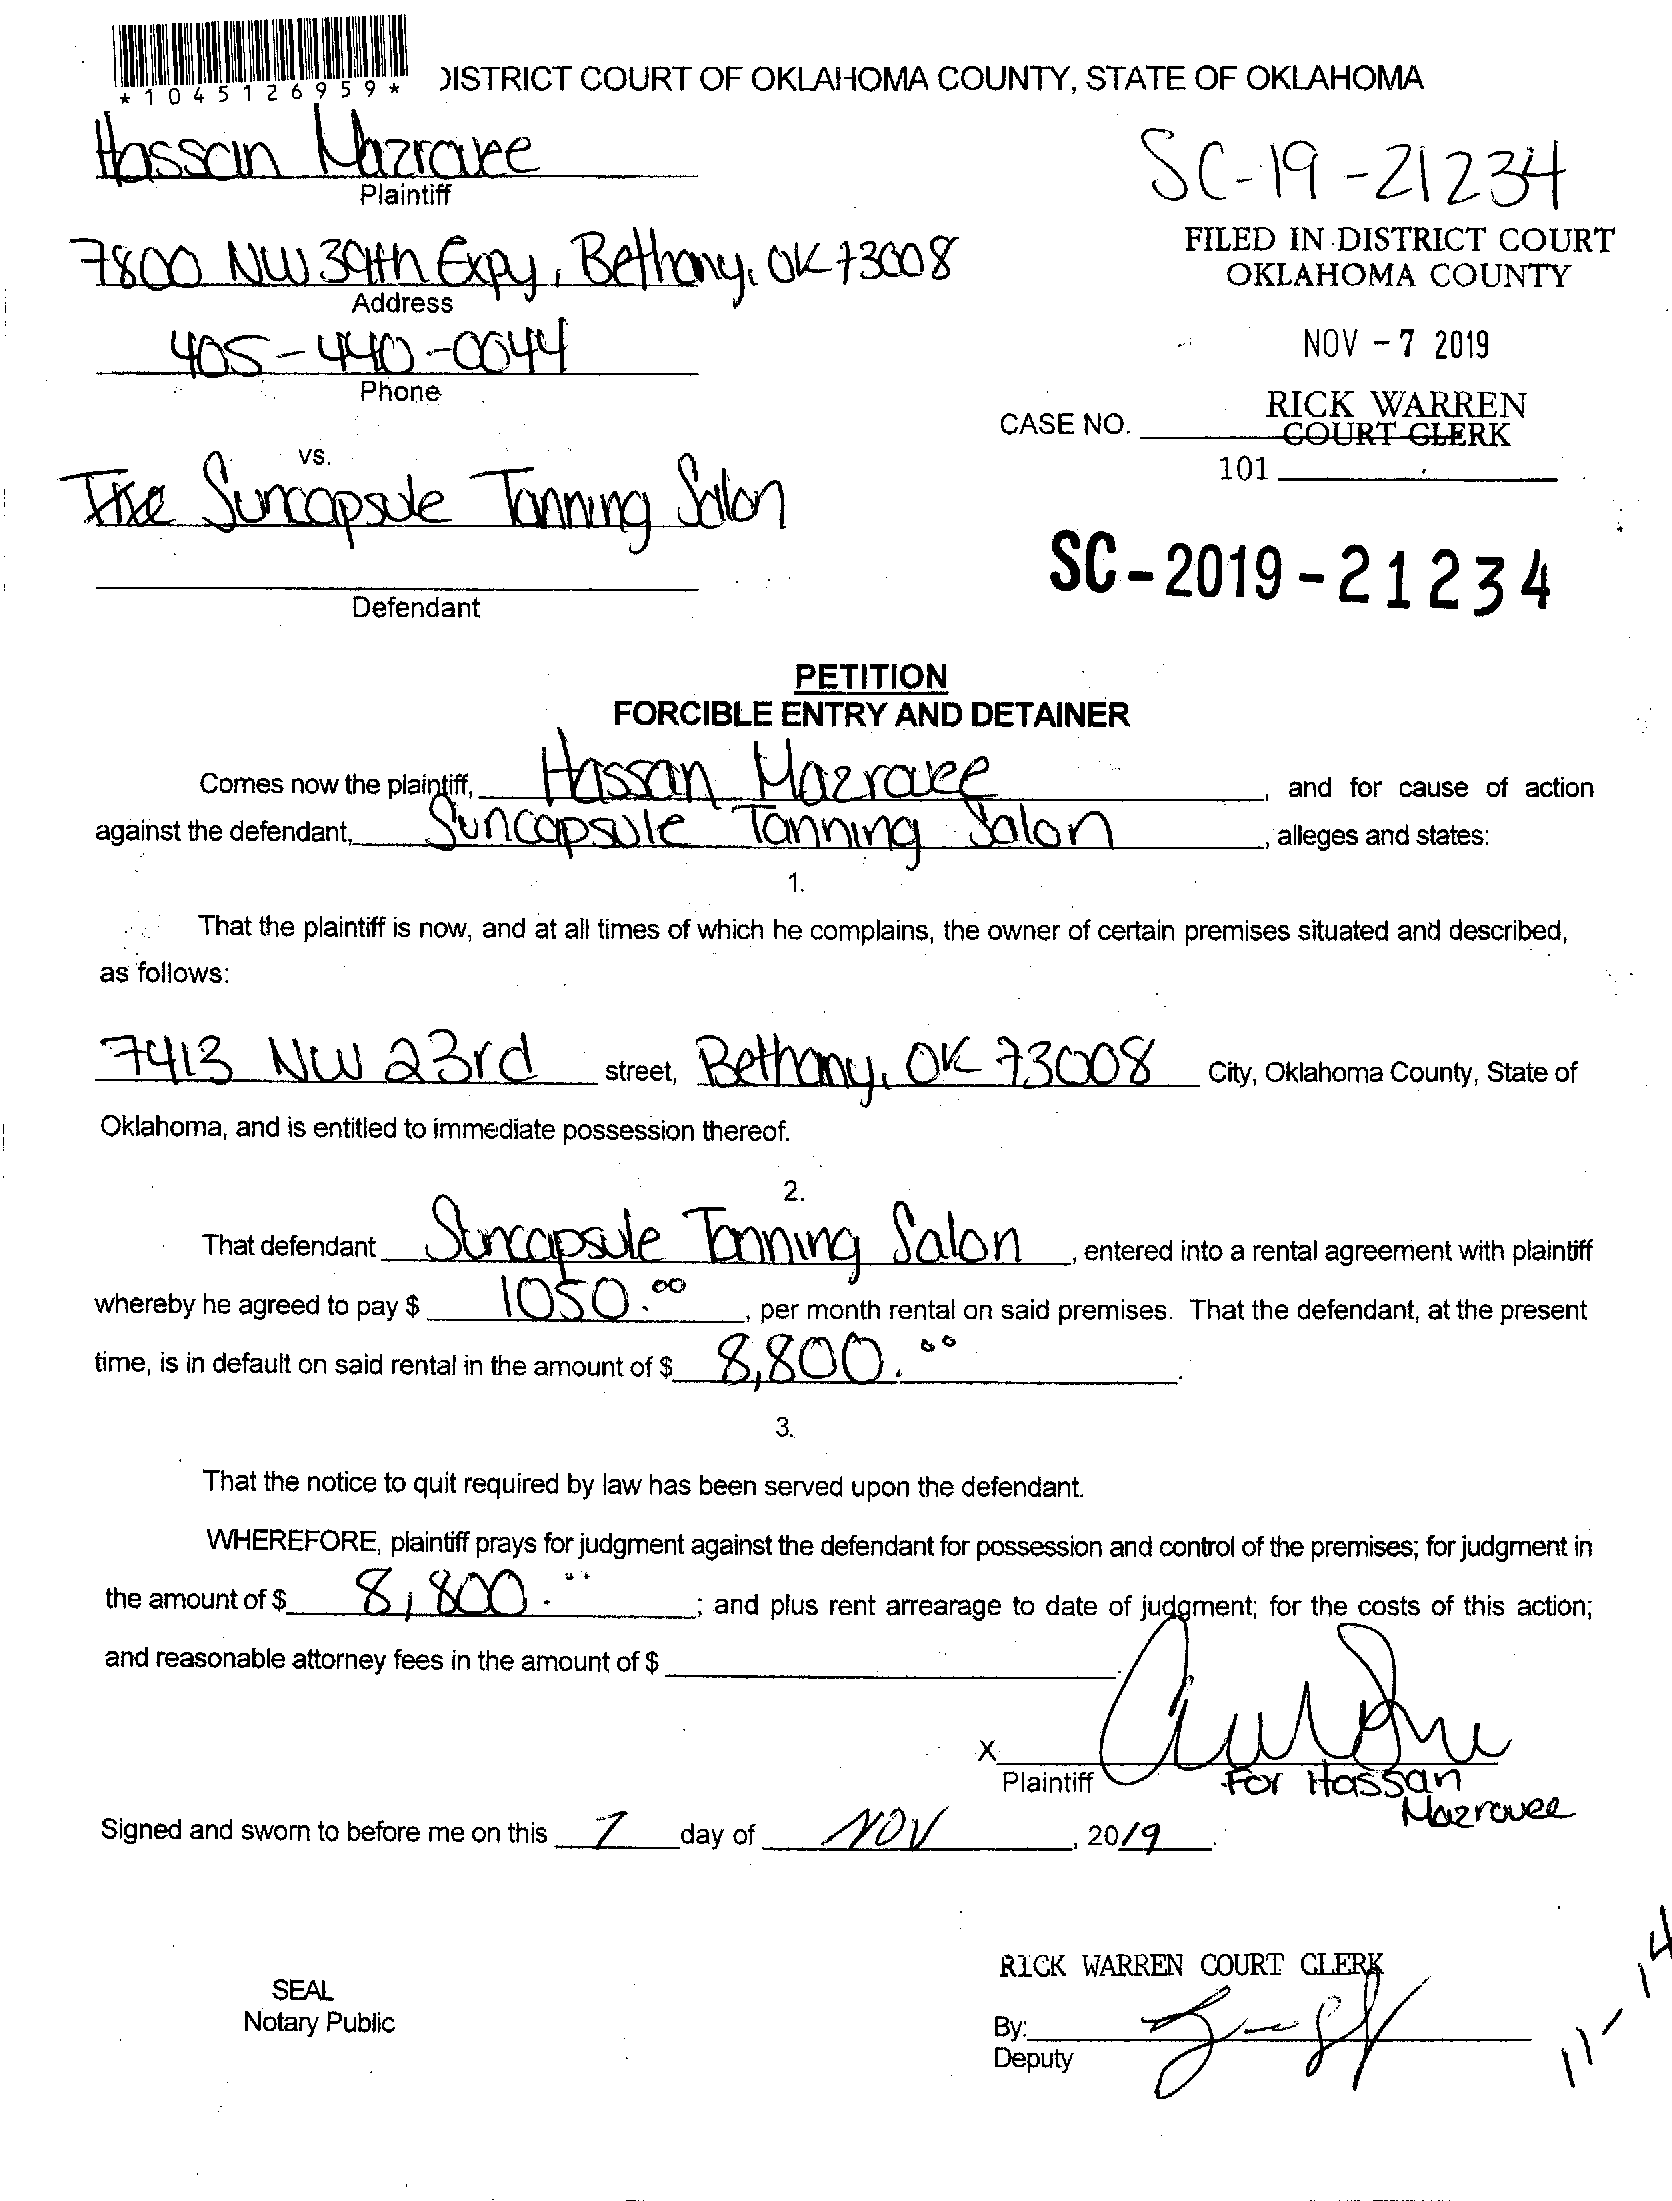 *1045126959*
DISTRICT COURT OF OKLAHOMA COUNTY, STATE OF OKLAHOMA
Hassan Mazraee
Plaintiff
SC-19-21234
7800 NW 39th Expy, Bethany, OK 73008
Address
FILED IN DISTRICT COURT
OKLAHOMA COUNTY
405-440-0044
Phone
NOV - 7 2019
RICK WARREN
COURT CLERK
CASE NO.
101
vs.
The Suncapsule Tanning Salon
Defendant
SC-2019-21234
PETITION
FORCIBLE ENTRY AND DETAINER
Comes now the plaintiff, Hassan Mazraee, and for cause of action
against the defendant, Suncapsule Tanning Salon, alleges and states:
1.
That the plaintiff is now, and at all times of which he complains, the owner of certain premises situated and described,
as follows:
7413 NW 23rd street, Bethany, OK 73008 City, Oklahoma County, State of
Oklahoma, and is entitled to immediate possession thereof.
2.
That defendant Suncapsule Tanning Salon, entered into a rental agreement with plaintiff
whereby he agreed to pay $ 1050.00, per month rental on said premises. That the defendant, at the present
time, is in default on said rental in the amount of $ 8,800.00.
3.
That the notice to quit required by law has been served upon the defendant.
WHEREFORE, plaintiff prays for judgment against the defendant for possession and control of the premises; for judgment in
the amount of $ 8,800.; and plus rent arrearage to date of judgment; for the costs of this action;
and reasonable attorney fees in the amount of $
X
Plaintiff For Hassan
Mazraee
Signed and sworn to before me on this 7 day of NOV, 2019.
RICK WARREN COURT CLERK
SEAL
Notary Public
By:
Deputy
11-14